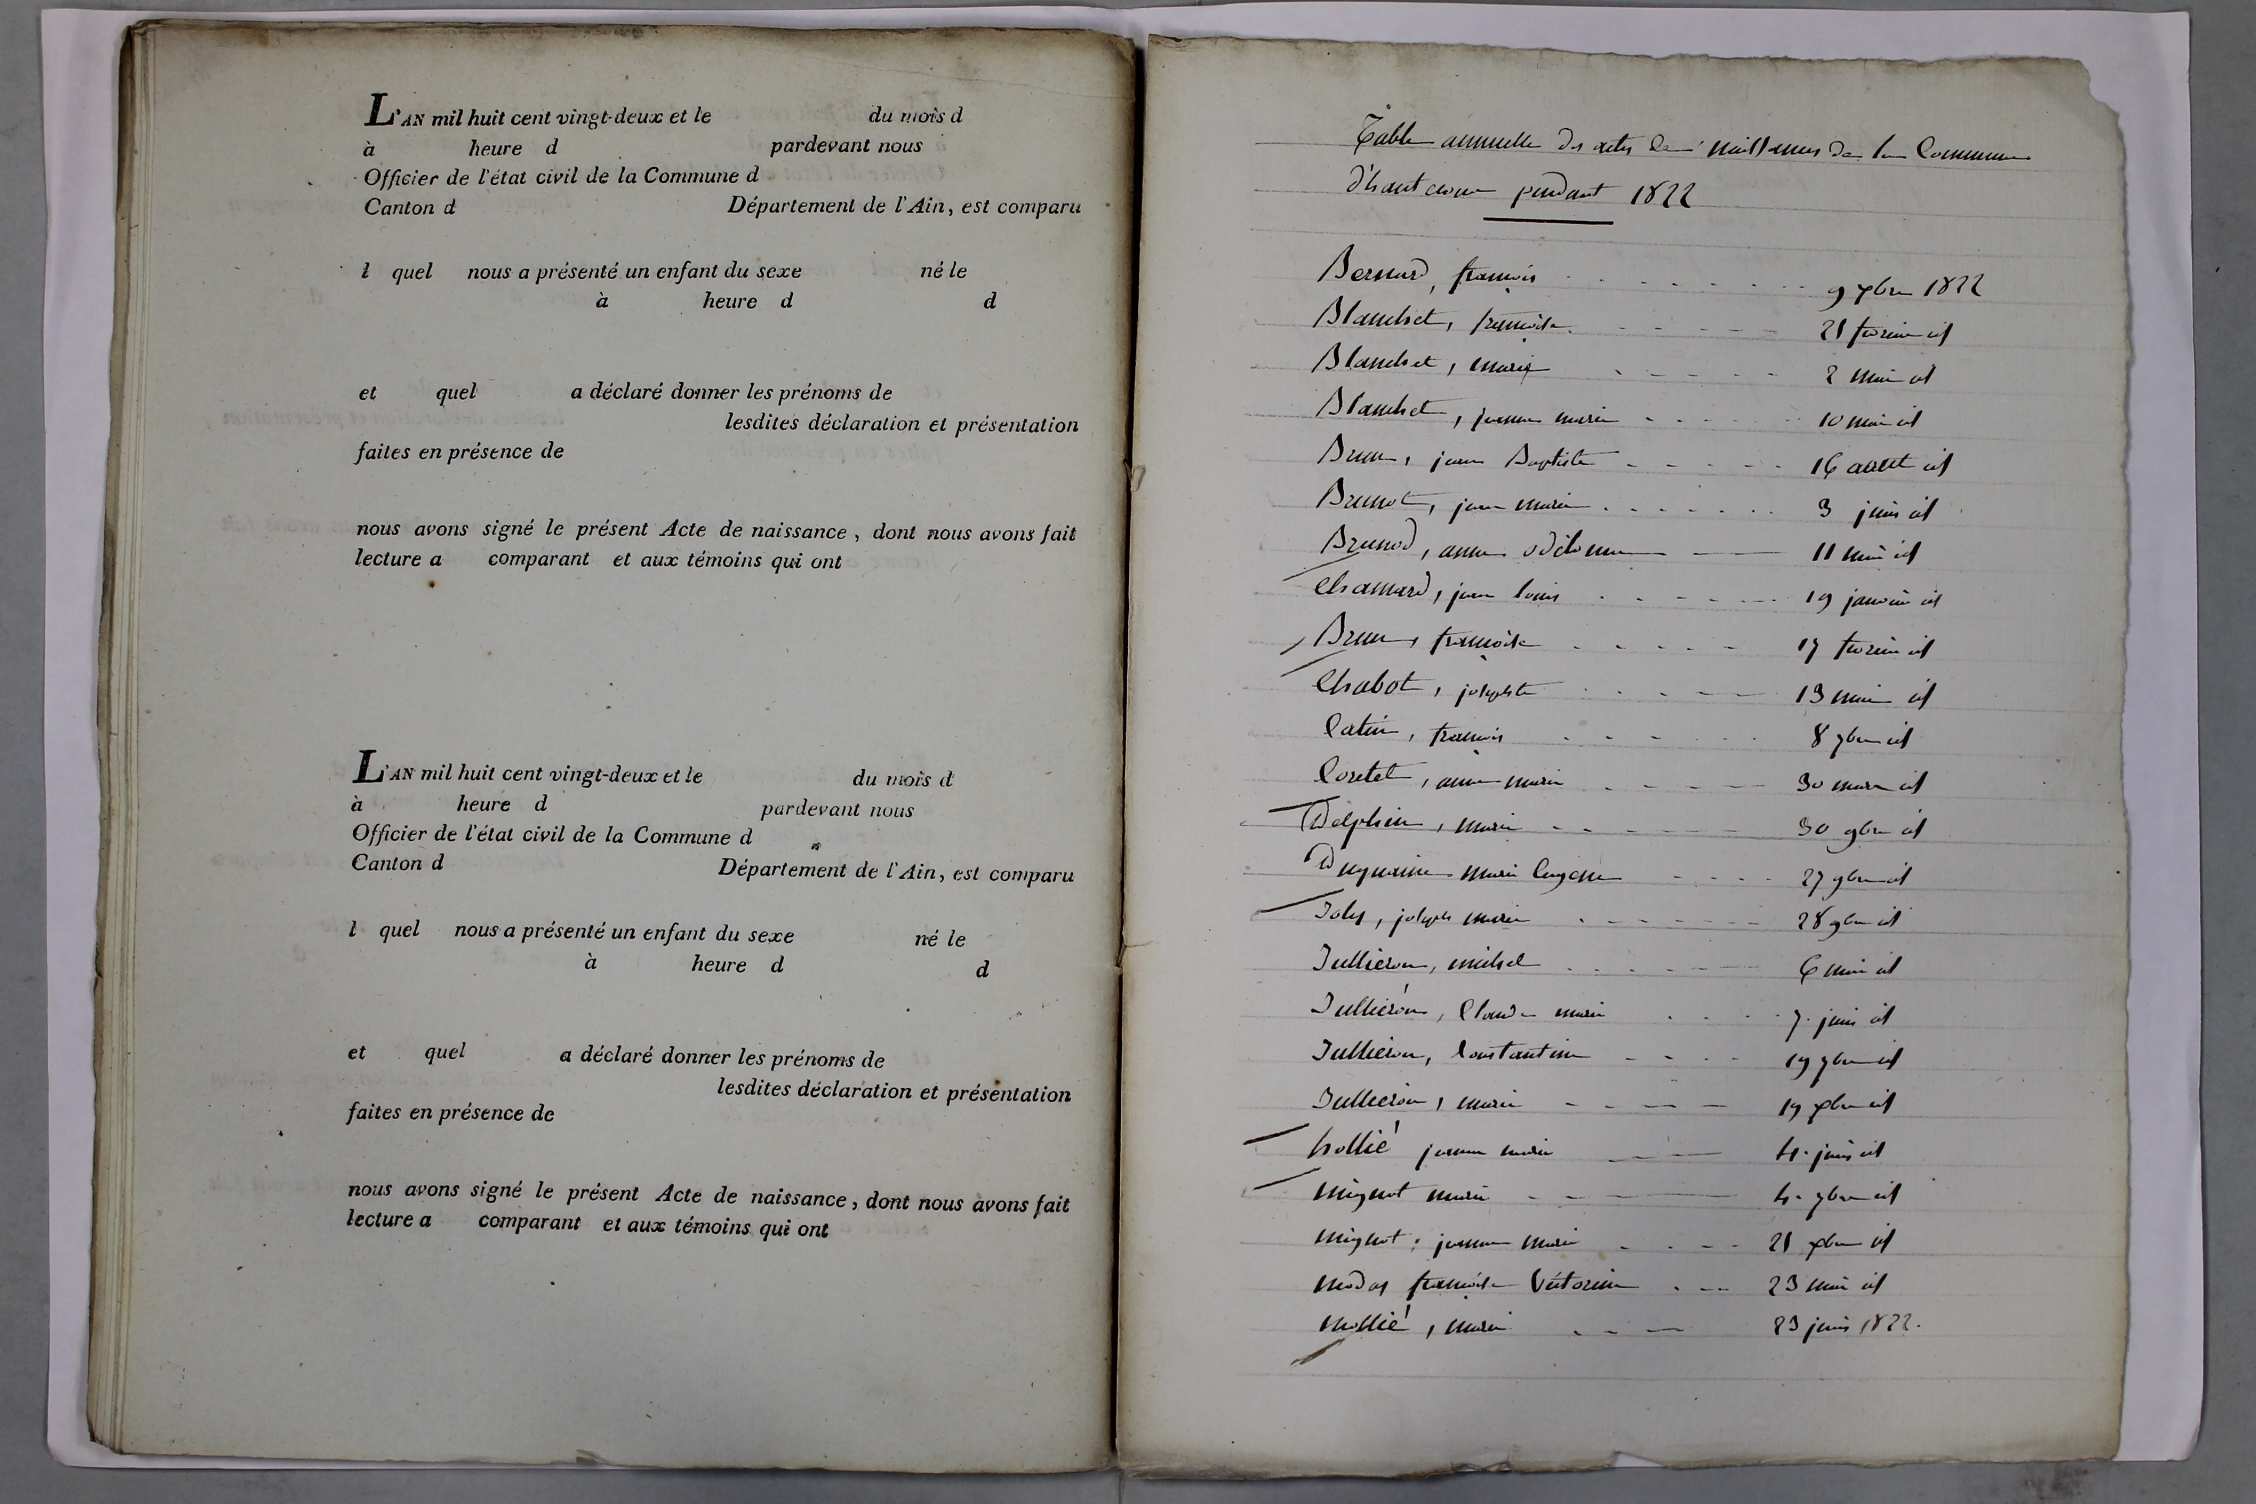 L'AN mil huit cent vingt-deux et le du mois d
à heure d pardevant nous
Officier de l'état civil de la Commune d
Canton d Département de l'Ain, est comparu
l quel nous a présenté un enfant du sexe né le
à heure d d
et quel a déclaré donner les prénoms de
lesdites déclaration et présentation
faites en présence de
nous avons signé le présent Acte de naissance, dont nous avons fait
lecture a comparant et aux témoins qui ont
L'AN mil huit cent vingt-deux et le du mois d
à heure d pardevant nous
Officier de l'état civil de la Commune d
Canton d Département de l'Ain, est comparu
l quel nous a présenté un enfant du sexe né le
à heure d d
et quel a déclaré donner les prénoms de
lesdites déclaration et présentation
faites en présence de
nous avons signé le présent Acte de naissance, dont nous avons fait
lecture a comparant et aux témoins qui ont
Table annuelle des actes de naissances de la Commune
d'hautecour pendant 1822
Bernard, françois 9 xbre 1822
Blanchet, françoise 21 fevrier id
Blanchet, marie 2 mai id
Blanchet, jeanne marie 10 mai id
Brun, jean Baptiste 16 aout id
Brunot, jean marie 3 juin id
Brunod, anne 11 mai id
Chanard, jean louis 19 janvier id
Brun, françoise 17 fevrier id
Chabot, josephte 13 mai id
Catin, françois 8 9bre id
Coretet, anne marie 30 mars id
Delphin, marie 30 9bre id
marie Eugene 27 9bre id
Joly, joseph marie 28 9bre id
Jullieron, michel 6 mai id
Jullieron, Claude marie 7 juin id
Jullieron, Constantin 19 9bre id
Jullieron, marie 19 xbre id
hollié jeanne marie 4 juin id
mignot marie 4 9bre id
mignot, jeanne marie 21 xbre id
modas françoise Victorine 23 mai id
mollié, marie 23 juin 1822.